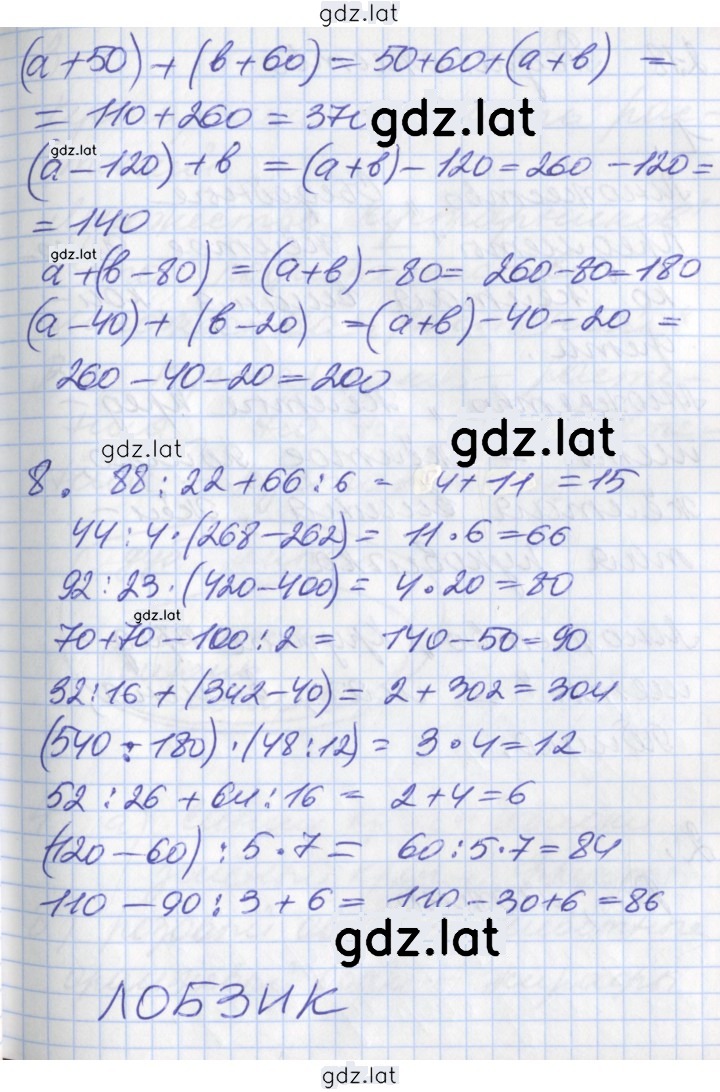 gdz.lat
(а+50)+(в+60) = 50+60+(а+в) =
= 110+260 = 37
gdz.lat
gdz.lat
(а-120)+в =(а+в)-120=260-120=
= 140
gdz.lat
а+(в-80) =(а+в)-80= 260-80=180
(а-40)+(в-20) =(а+в)-40-20 =
260-40-20=200
gdz.lat
gdz.lat
8. 88:22+66:6 = 4+11 =15
44:4·(268-262)= 11·6=66
92:23·(420-400)= 4·20=80
gdz.lat
70+70-100:2 = 140-50=90
32:16+(342-40)= 2+302=304
(540:180)·(48:12)= 3·4=12
52:26+64:16 = 2+4=6
(120-60):5·7= 60:5·7=84
110-90:3+6= 110-30+6=86
gdz.lat
ЛОБЗИК
gdz.lat